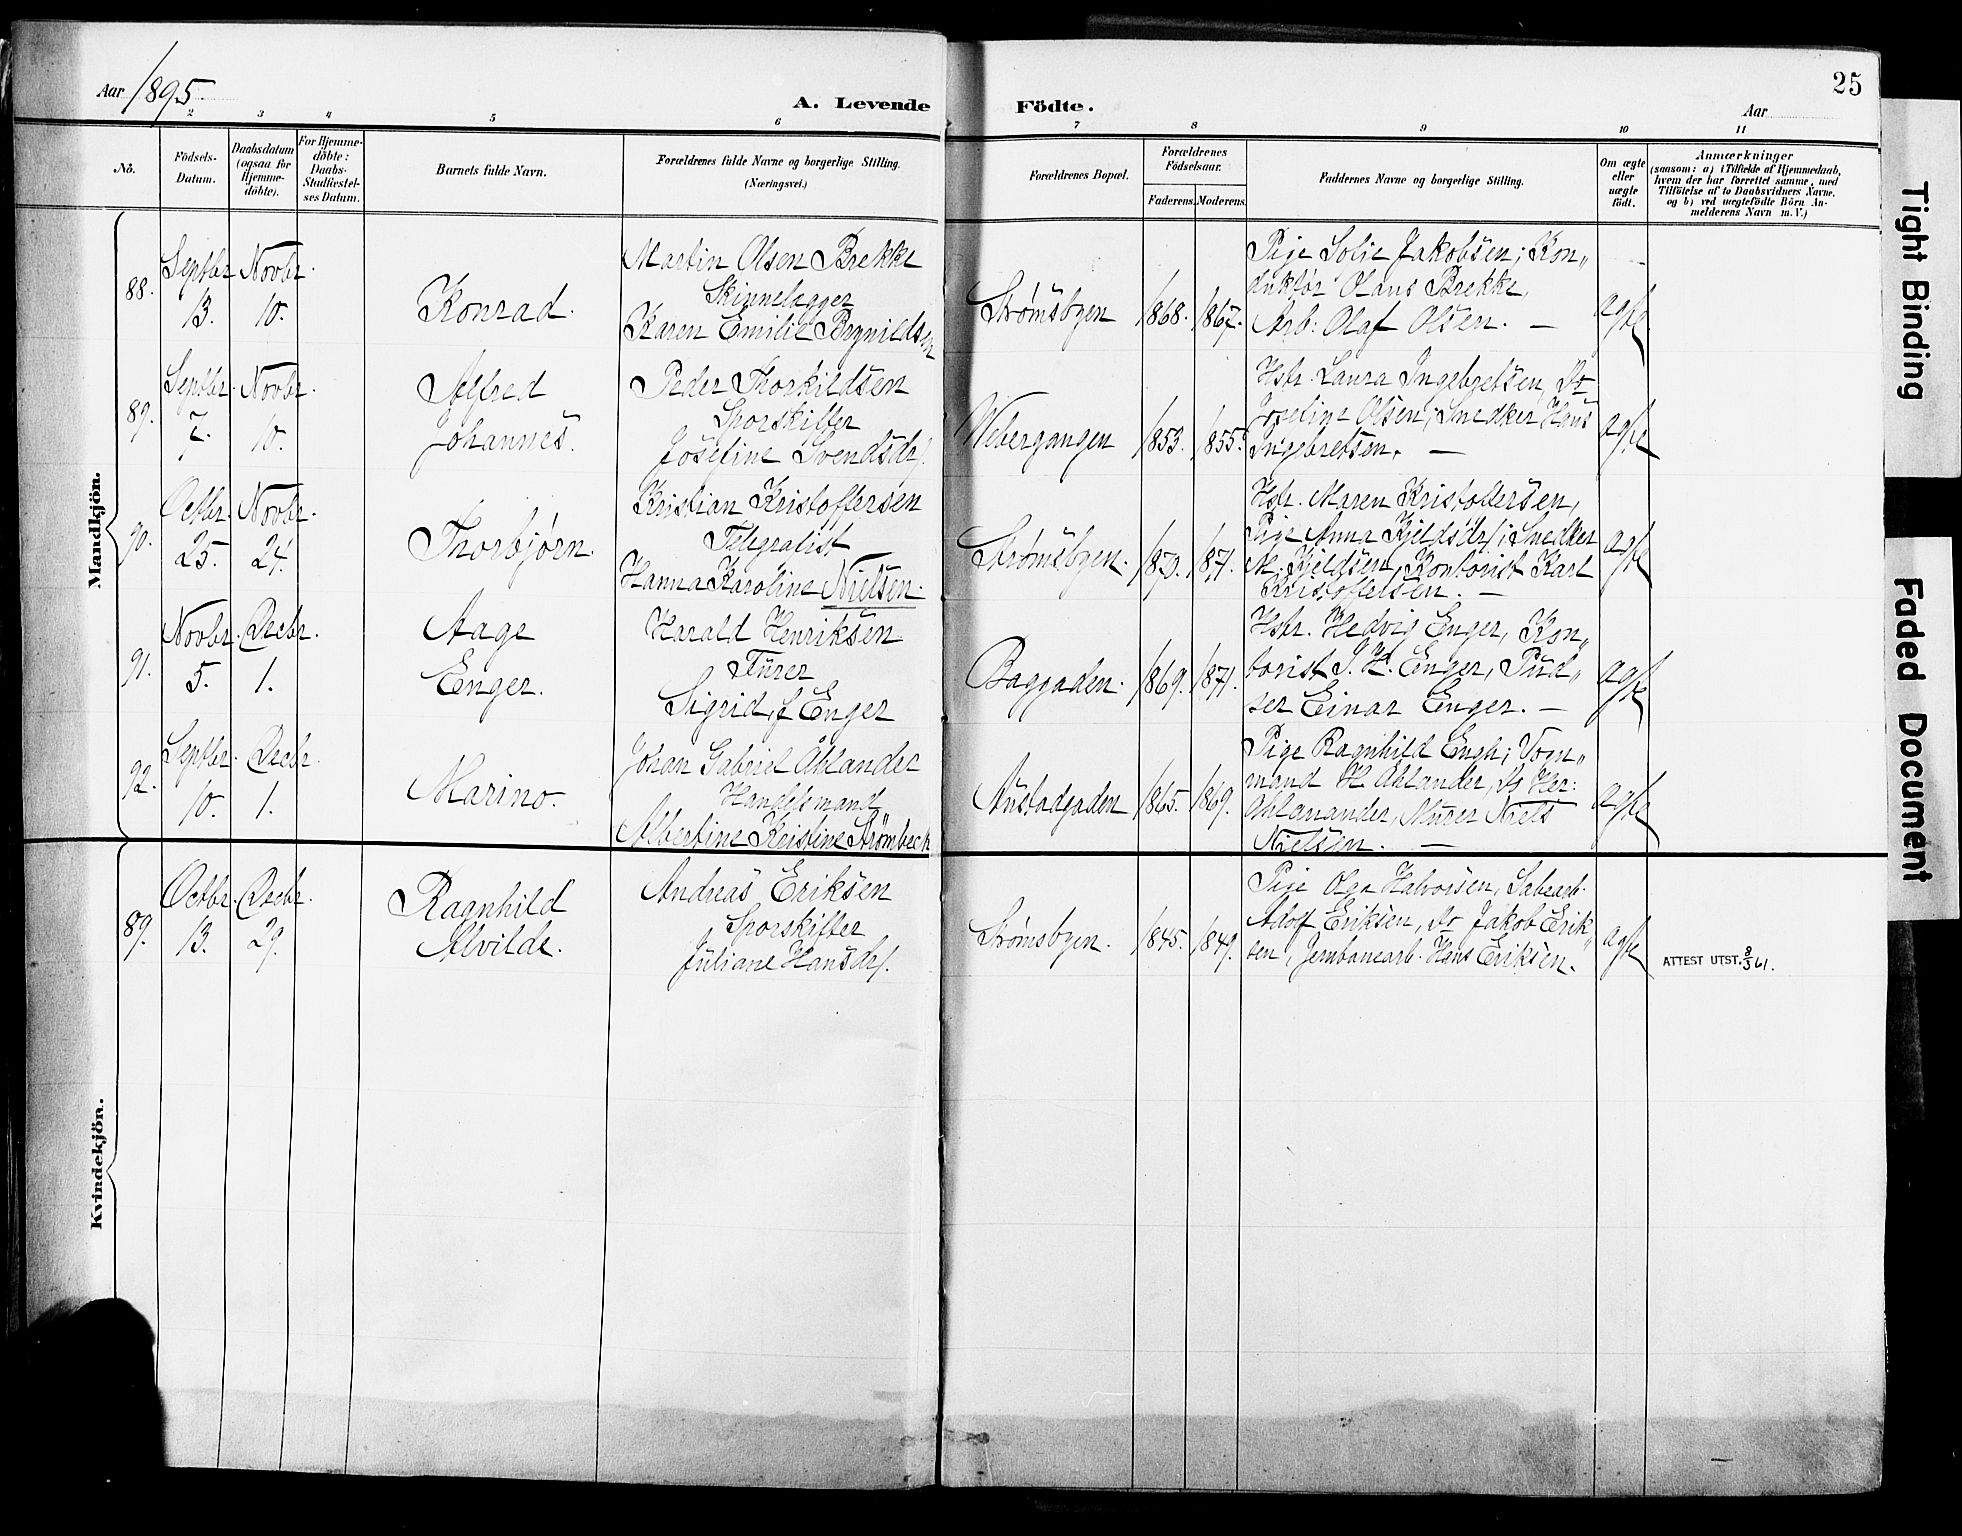 Aar 1895.
A. Levende Födte.
Aar
25
2 3 4 5 6 7 8 9 10 11
No.
Födsels-
Datum.
Daabsdatum
(ogsaa for
Hjemme-
döbte).
For Hjemme-
döbte:
Daabs-
Stadfæstel-
ses Datum.
Barnets fulde Navn.
Forældrenes fulde Navne og borgerlige Stilling.
(Næringsvei.)
Forældrenes Bopæl.
Forældrenes
Födselsaar.
Faderens. Moderens.
Faddernes Navne og borgerlige Stilling.
Om ægte
eller
uægte
födt.
Anmærkninger
(saasom: a) i Tilfælde af Hjemmedaab,
hvem der har forrettet samme, med
Tilföielse af to Daabsvidners Navne,
og b) ved uægtefödte Börn An-
melderens Navn m. V.)
Mandkjön.
88.
Septbr. 13.
Novbr. 10.
Konrad.
Martin Olsen Brekke
Skinnelægger
Karen Emilie Brynildsen
Strømsbyen
1868. 1867.
Pige Solie Jakobsen; Kon„
duktør Olaus Brekke,
Arb: Olaf Olsen. —
ægte
89.
Septbr. 7.
Novbr. 10.
Alfred
Johannes.
Peder Thorkildsen
Sporskifter
Josefine Svendsdr.
Vebergangen
1853. 1855.
Hstr. Laura Ingebretsen, Do
Josefine Olsen; Snedker Hans
Ingebretsen. —
ægte
90.
Octbr. 25.
Novbr. 24.
Thorbjørn.
Kristian Kristoffersen
Telegrafist
Hanna Karoline Nielsen.
Strømsbyen.
1870. 1871.
Hstr. Maren Kristoffersen,
Pige Anna Kjeldsdr; Snedker
M. Kjeldsen, Kontorist Karl
Kristoffersen. —
ægte
91.
Novbr. 5.
Decbr. 1.
Aage
Enger.
Harald Henriksen
Fürer
Sigrid, f Enger
Baggaden.
1869. 1871.
Hstr. Hedvig Enger, Kon„
torist J. H. Enger, Pud„
ser Einar Enger. —
ægte
92.
Septbr. 10.
Decbr. 1.
Marino.
Johan Gabriel Åhlander
Handelsmand
Albertine Kristine Strömbeck
1865. 1869.
Pige Ragnhild Engh; Vogn„
mand H. Ahlander, Do Her:
Ahlanander, Murer Niels
Nielsen. —
ægte
Kvindekjön.
89.
Octbr. 13.
Decbr. 29.
Ragnhild
Alvilde.
Andreas Eriksen
Sporskifter
Juliane Hansdr.
Strømsbyen.
1845. 1849.
Pige Olga Halvorsen, Sabearb.
Adolf Eriksen, Do Jakob Erik„
sen, Jernbanearb. Hans Eriksen.
ægte
ATTEST UTST. 8/3 61.
Tight Binding
Faded Document